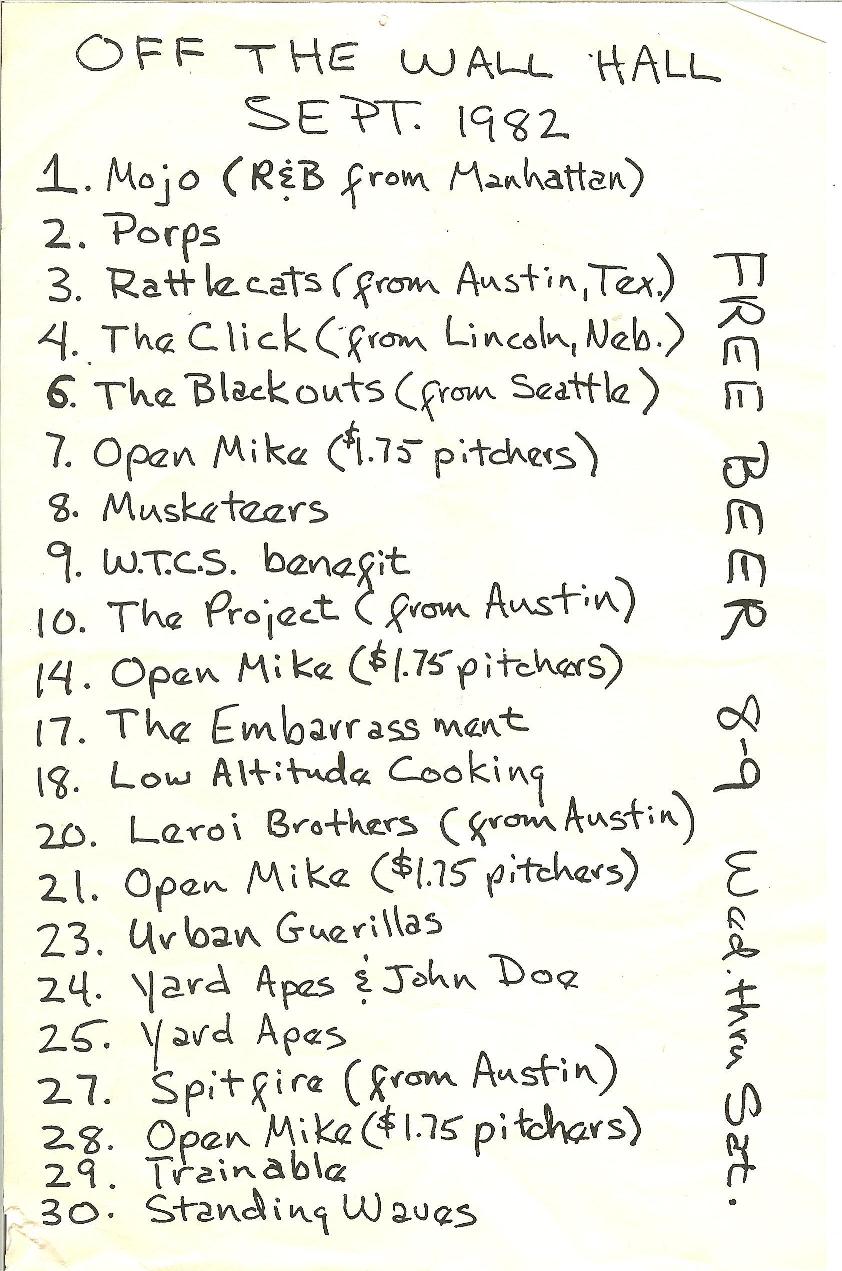 OFF THE WALL HALL
SEPT. 1982
1. Mojo (R&B from Manhattan)
2. Porps
3. Rattlecats (from Austin, Tex.)
4. The Click (from Lincoln, Neb.)
6. The Blackouts (from Seattle)
7. Open Mike ($1.75 pitchers)
8. Musketeers
9. W.T.C.S. benefit
10. The Project (from Austin)
14. Open Mike ($1.75 pitchers)
17. The Embarrassment
18. Low Altitude Cooking
20. Leroi Brothers (from Austin)
21. Open Mike ($1.75 pitchers)
23. Urban Guerillas
24. Yard Apes & John Doe
25. Yard Apes
27. Spitfire (from Austin)
28. Open Mike ($1.75 pitchers)
29. Trainable
30. Standing Waves
FREE BEER 8-9 Wed. thru Sat.